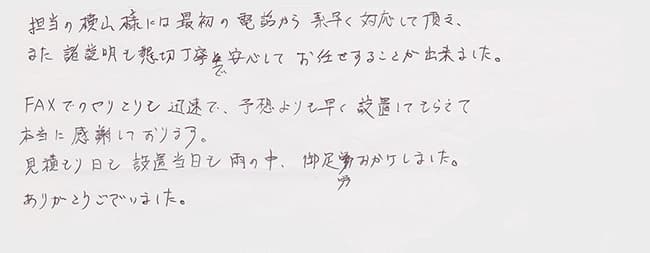 担当の横山様には最初の電話から素早く対応して頂き、
また諸説明も懇切丁寧で安心してお任せすることが出来ました。
FAXでのやりとりも迅速で、予想よりも早く設置してもらえて
本当に感謝しております。
見積もり日も設置当日も雨の中、御足労おかけしました。
ありがとうございました。